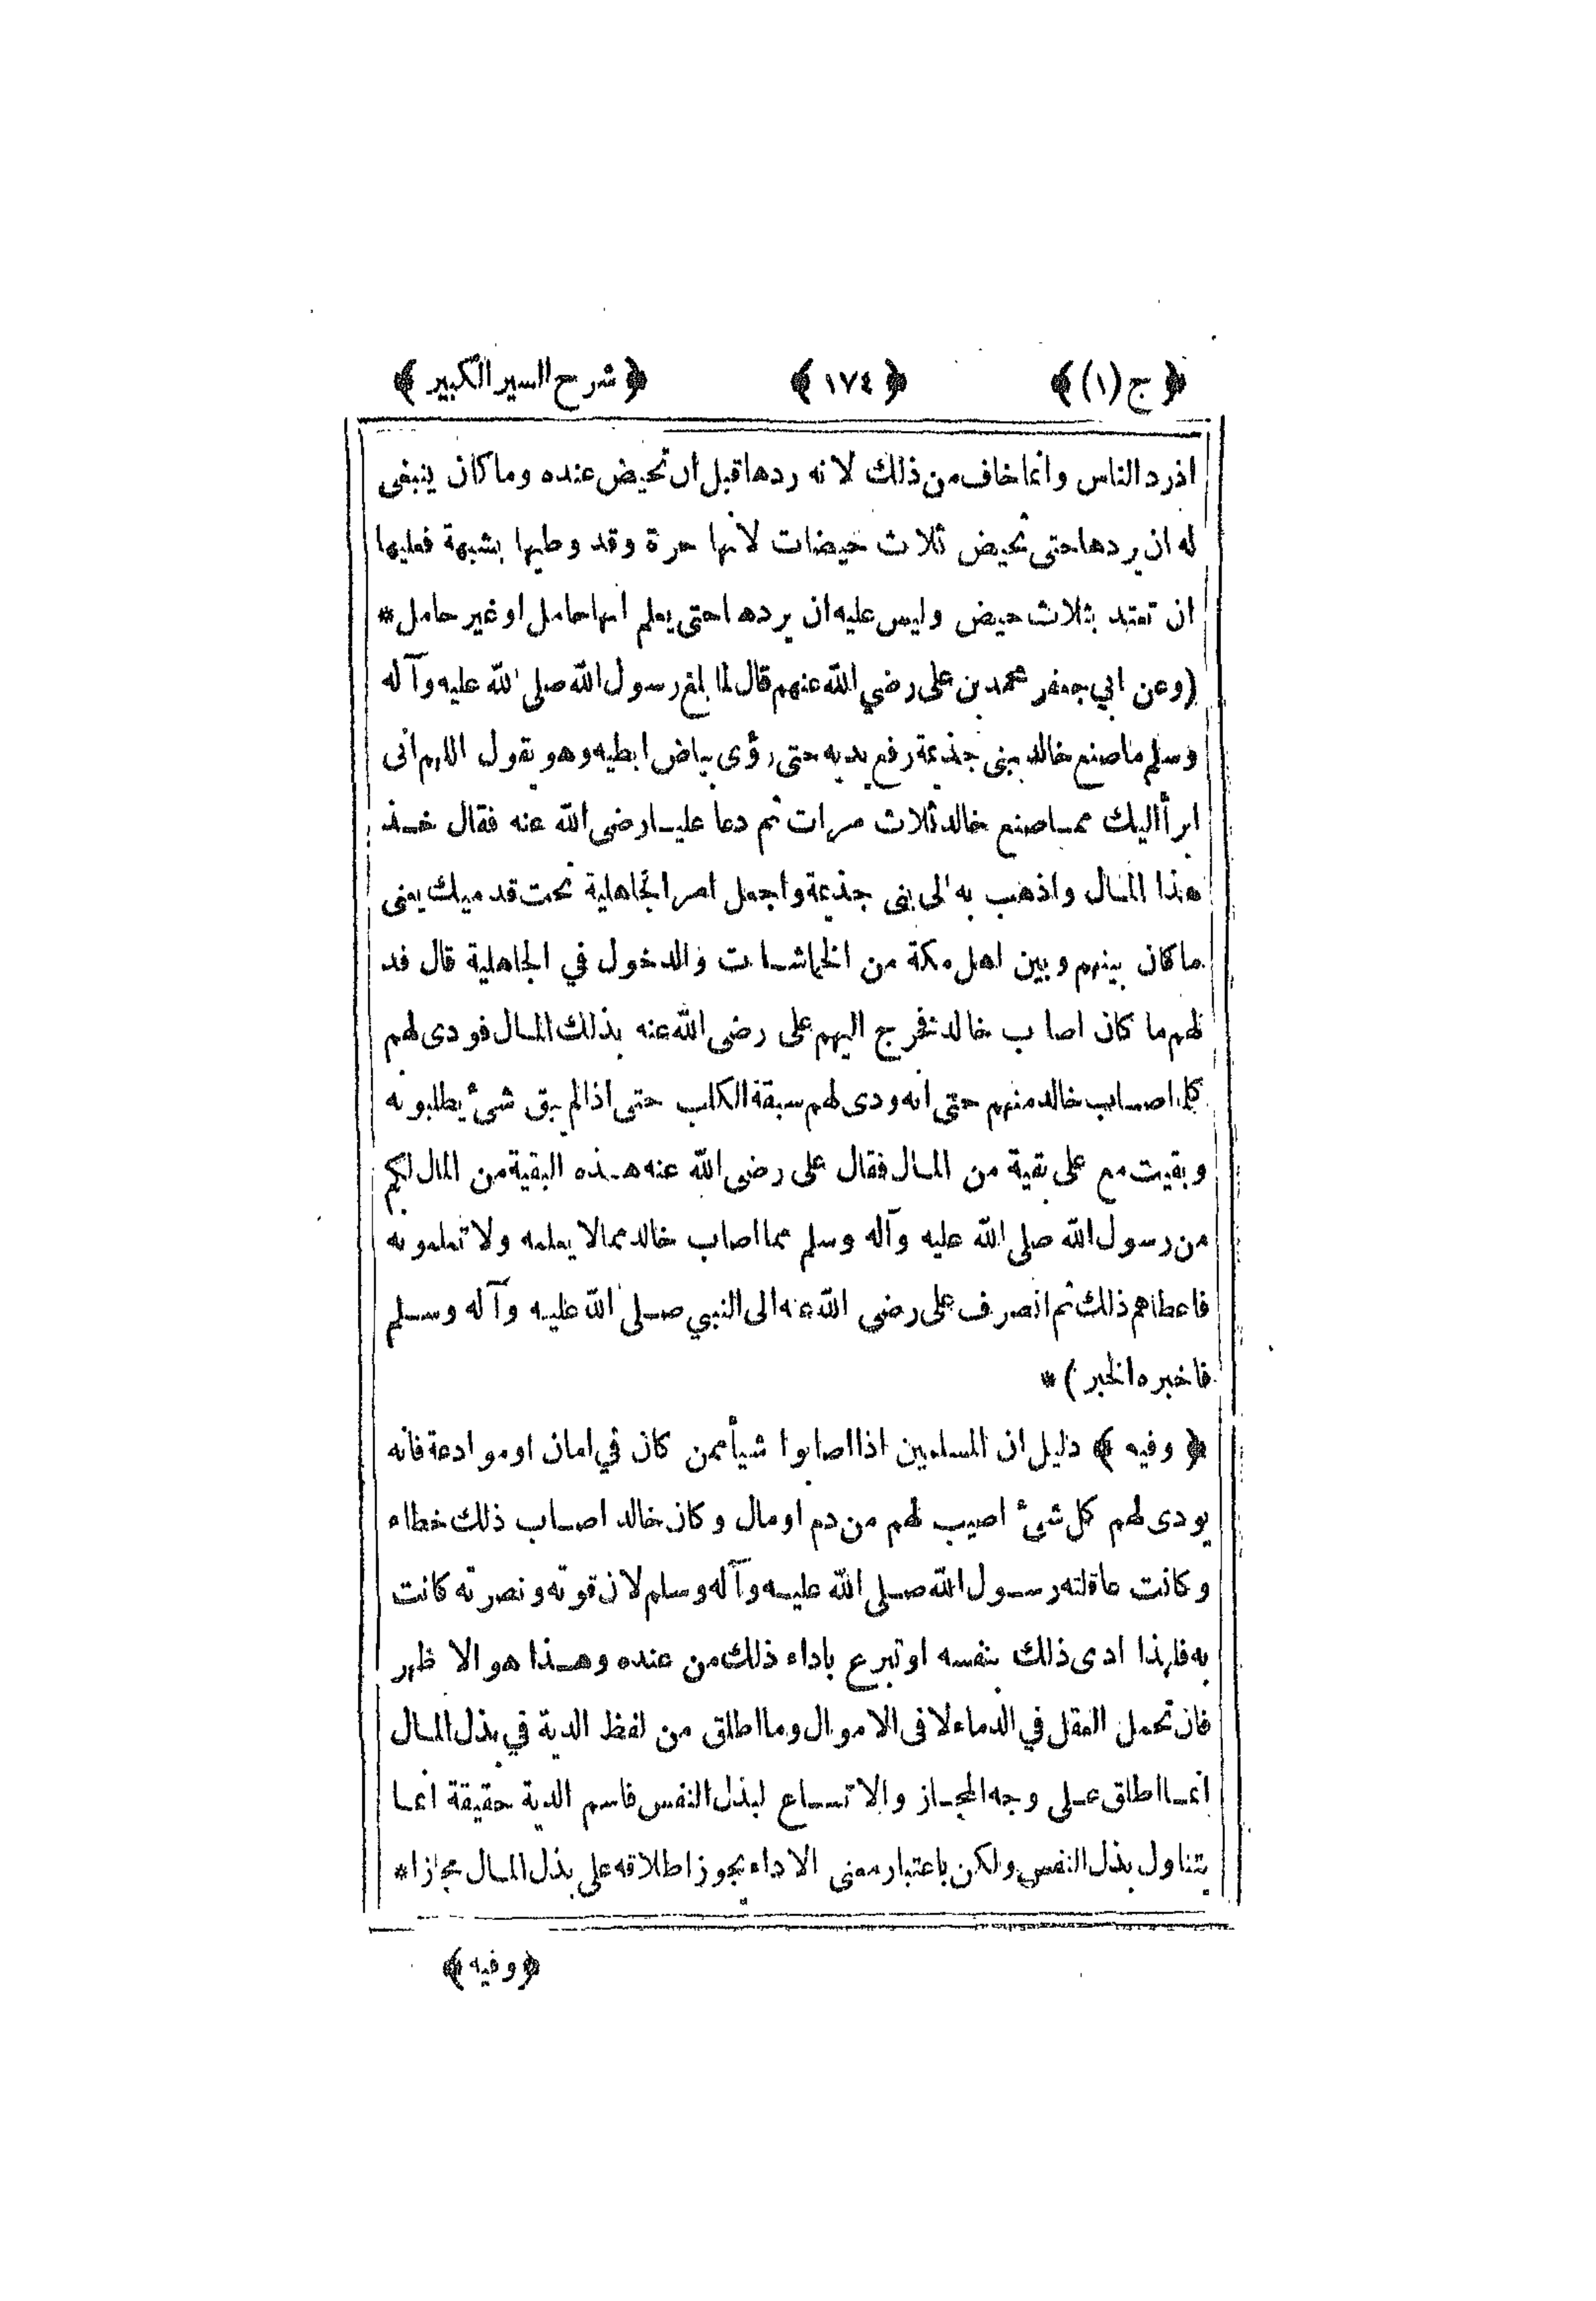 ﴿ ج (١) ﴾ ﴿ ١٧٤ ﴾ ﴿ شرح السير الكبير ﴾
اذ رد الناس وانما خاف من ذلك لانه ردها قبل ان تحيض عنده وما كان ينبغى
له ان يردها حتى تحيض ثلاث حيضات لانها حرة وقد وطيها بشبهة فعليها
ان تعتد بثلاث حيض وليس عليه ان يردها حتى يعلم انها حامل او غير حامل *
(وعن ابي جعفر محمد بن على رضي الله عنهم قال لما بلغ رسول الله صلى الله عليه وآله
وسلم ما صنع خالد ببنى جذيمة رفع يديه حتى رؤى بياض ابطيه وهو يقول اللهم انى
ابرأ اليك ممـا صنع خالد ثلاث مرات ثم دعا عليـا رضى الله عنه فقال خـذ
هذا المـال واذهب به الى بنى جذيمة واجعل امر الجاهلية تحت قدميك يعنى
ما كان بينهم وبين اهل مكة من الخماشـات والدخول في الجاهلية قال فد
لهم ما كان اصاب خالد فخرج اليهم على رضى الله عنه بذلك المـال فودى لهم
كلما اصـاب خالد منهم حتى انه ودى لهم سبقة الكلب حتى اذا لم يبق شئ يطلبونه
وبقيت مع على بقية من المـال فقال على رضى الله عنه هـذه البقية من المال لكم
من رسول الله صلى الله عليه وآله وسلم مما اصاب خالد مما لا يعلمه ولا تعلمونه
فاعطاهم ذلك ثم انصرف على رضى الله عنه الى النبي صـلى الله عليـه وآله وسـلم
فاخبره الخبر ) *
﴿ وفيه ﴾ دليل ان المسلمين اذا اصابوا شيأ ممن كان في امان او موادعة فانه
يودى لهم كل شئ اصيب لهم من دم او مال وكان خالد اصـاب ذلك خطاء
وكانت عاقلته رسـول الله صـلى الله عليـه وآله وسلم لان قوته ونصرته كانت
به فلهذا ادى ذلك بنفسه او تبرع باداء ذلك من عنده وهـذا هو الاظهر
فان تحمل العقل في الدماء لا فى الاموال وما اطلق من لفظ الدية في بذل المـال
انمـا اطلق عـلى وجه المجـاز والاتسـاع لبذل النفس فاسم الدية حقيقة انمـا
يتناول بذل النفس ولكن باعتبار معنى الاداء يجوز اطلاقه على بذل المـال مجازا *
﴿ وفيه ﴾